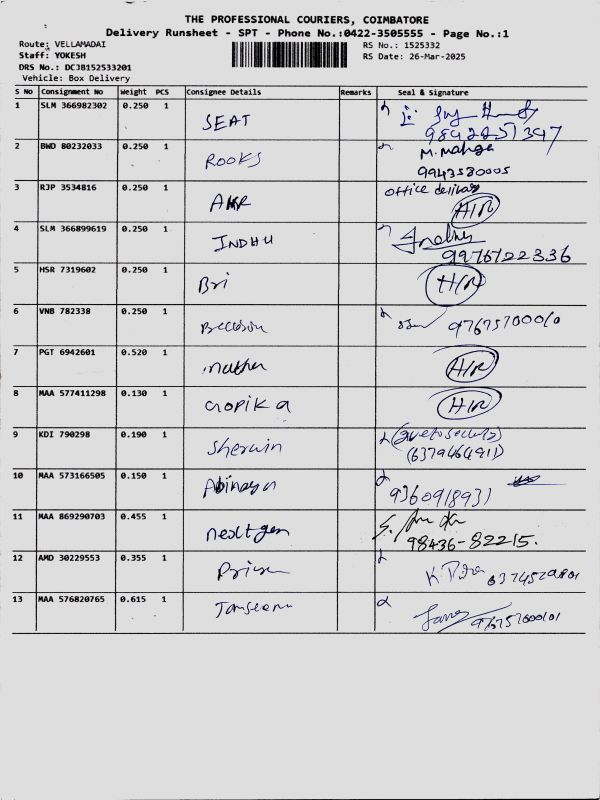 THE PROFESSIONAL COURIERS, COIMBATORE
Delivery Runsheet - SPT - Phone No.:0422-3505555 - Page No.:1
Route: VELLAMADAI
RS No.: 1525332
Staff: YOKESH
RS Date: 26-Mar-2025
DRS No.: DCJB152533201
Vehicle: Box Delivery
S No Consignment No Weight PCS Consignee Details Remarks Seal & Signature
1 SLM 366982302 0.250 1 SEAT
9842257347
2 BWD 80232033 0.250 1 ROOKS M. Mahga
9943580005
3 RJP 3534816 0.250 1 AKR office delivary
H/R
4 SLM 366899619 0.250 1 INDHU
9976722336
5 HSR 7319602 0.250 1 Bri H/R
6 VNB 782338 0.250 1
7 PGT 6942601 0.520 1 H/R
8 MAA 577411298 0.130 1 Gopika H/R
9 KDI 790298 0.190 1 Sherwin
10 MAA 573166505 0.150 1 Abinaya 9360918931
11 MAA 869290703 0.455 1 nextgen
98436-82215.
12 AMD 30229553 0.355 1 Priya
13 MAA 576820765 0.615 1